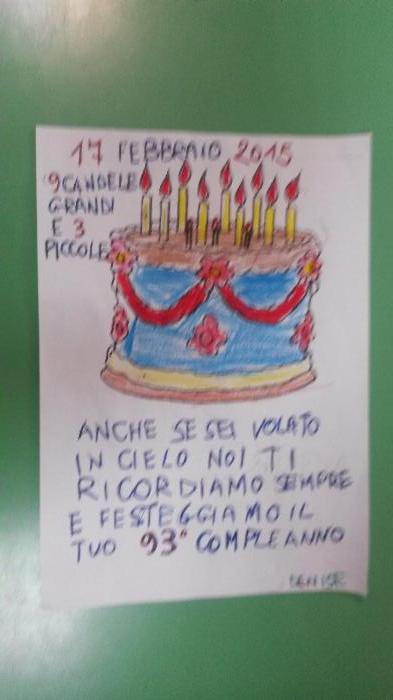 17 FEBBRAIO 2015
9 CANDELE
GRANDI
E 3
PICCOLE
ANCHE SE SEI VOLATO
IN CIELO NOI TI
RICORDIAMO SEMPRE
E FESTEGGIAMO IL
TUO 93° COMPLEANNO
DENISE